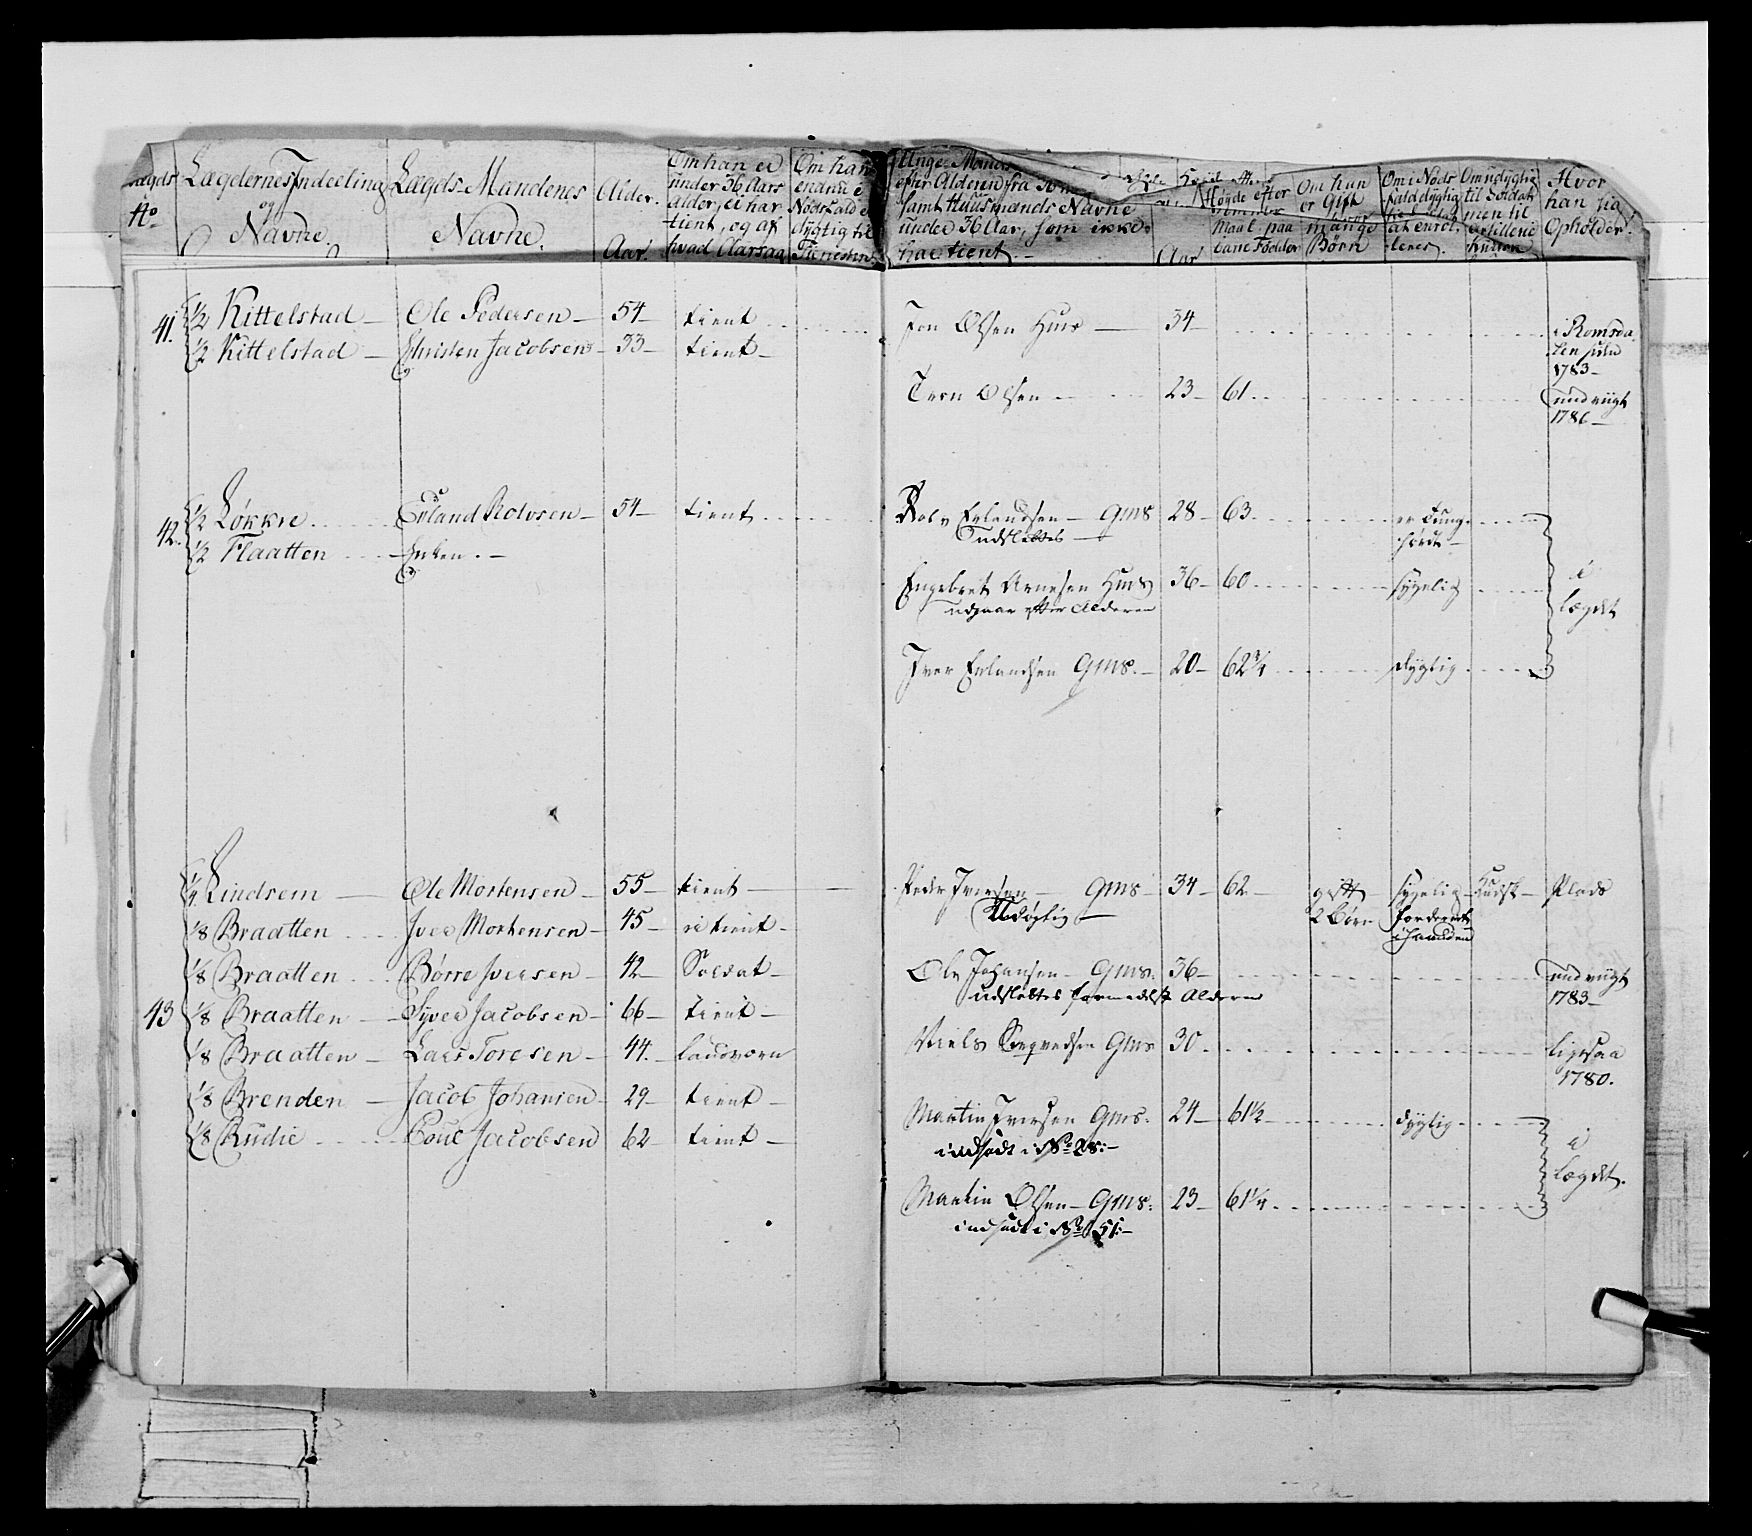 Lægds No
Lægdernes Indeeling og Navne.
Lægds Mandenes Navne.
Alder. Aar.
Om han er under 36 Aars alder, ei har tient, og af hvad Aarsag
Om han endnu er Nødsfald dygtig til Tienesten
Unge Mands efter Alderen fra samt Huusmænds Navne under 36 Aar, som ikke har tient.
Aar
Høyde efter maal paa bare Fødder
Om han er Gift mange Børn
Om i Nødsfald dygtig at enrolleres.
Om udygtig til Soldat men til
Hvor han sig Opholder.
41. 1/2 Kittelstad — Ole Pedersen — 54 — tient
1/2 Kittelstad — Christen Jacobsen — 33 — tient —
Jon Olsen Huus — 34 — i Romsdalen siden 1783 —
Tern Olsen 23 — 61 undviigt 1786 —
42. 1/2 Løkkre Erland Rolvsen — 54 — tient
1/2 Flaatten Enken. —
Rolv Erlandsen — Gms 28 — 63 er Tung hørdt —
Udslettes —
Engebret Arnesen Huus 36 — 60 sygelig
udgaar efter Alderen
i lægdet
Iver Erlandsen Gms. — 20 — 62 3/4 dygtig
1/4 Lindsem — Ole Mortensen — 55 — tient —
1/8 Braatten Iver Mortensen — 45 — ei tient —
1/8 Braatten Børre Iversen — 42 — Soldat —
43 1/8 Braatten — Syver Jacobsen — 66 — tient —
1/8 Braatten — Lars Toresen — 44. — landvorn
1/8 Brenden — Jacob Johansen — 29 — tient —
1/8 Rudie Poul Jacobsen 62 — tient —
Peder Iversen — Gms 34 — 62 — gift 2 Børn sygelig — Kudsk — Plads
Udygtig —
Ole Johansen — Gms. 36 — undviigt 1783 —
udslettes formedelst Alderen
Niels Gms 30 ligesaa 1780.
Martin Iversen Gms. 24 — 61 1/2 dygtig
indsadt i No 28: —
i lægdet.
Martin Olsen — Gms. 23 — 61 1/4
indsadt i No 51: —